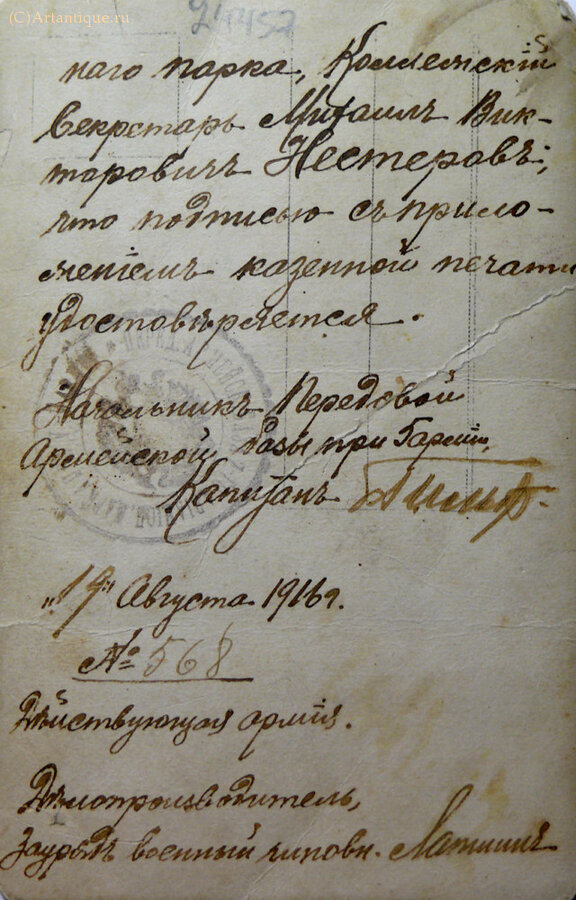 (C)Artantique.ru
24452
наго парка, Коллежскій
Секретарь Михаилъ Вик-
торовичъ Нестеровъ;
что подписью съ прило-
женіемъ казенной печати
удостовѣряется.
Начальникъ Передовой
Армейской базы при
Капитанъ
"19" Августа 1916г.
№ 568
Дѣйствующая армія.
Дѣлопроизводитель,
Заурядъ военный чиновн.